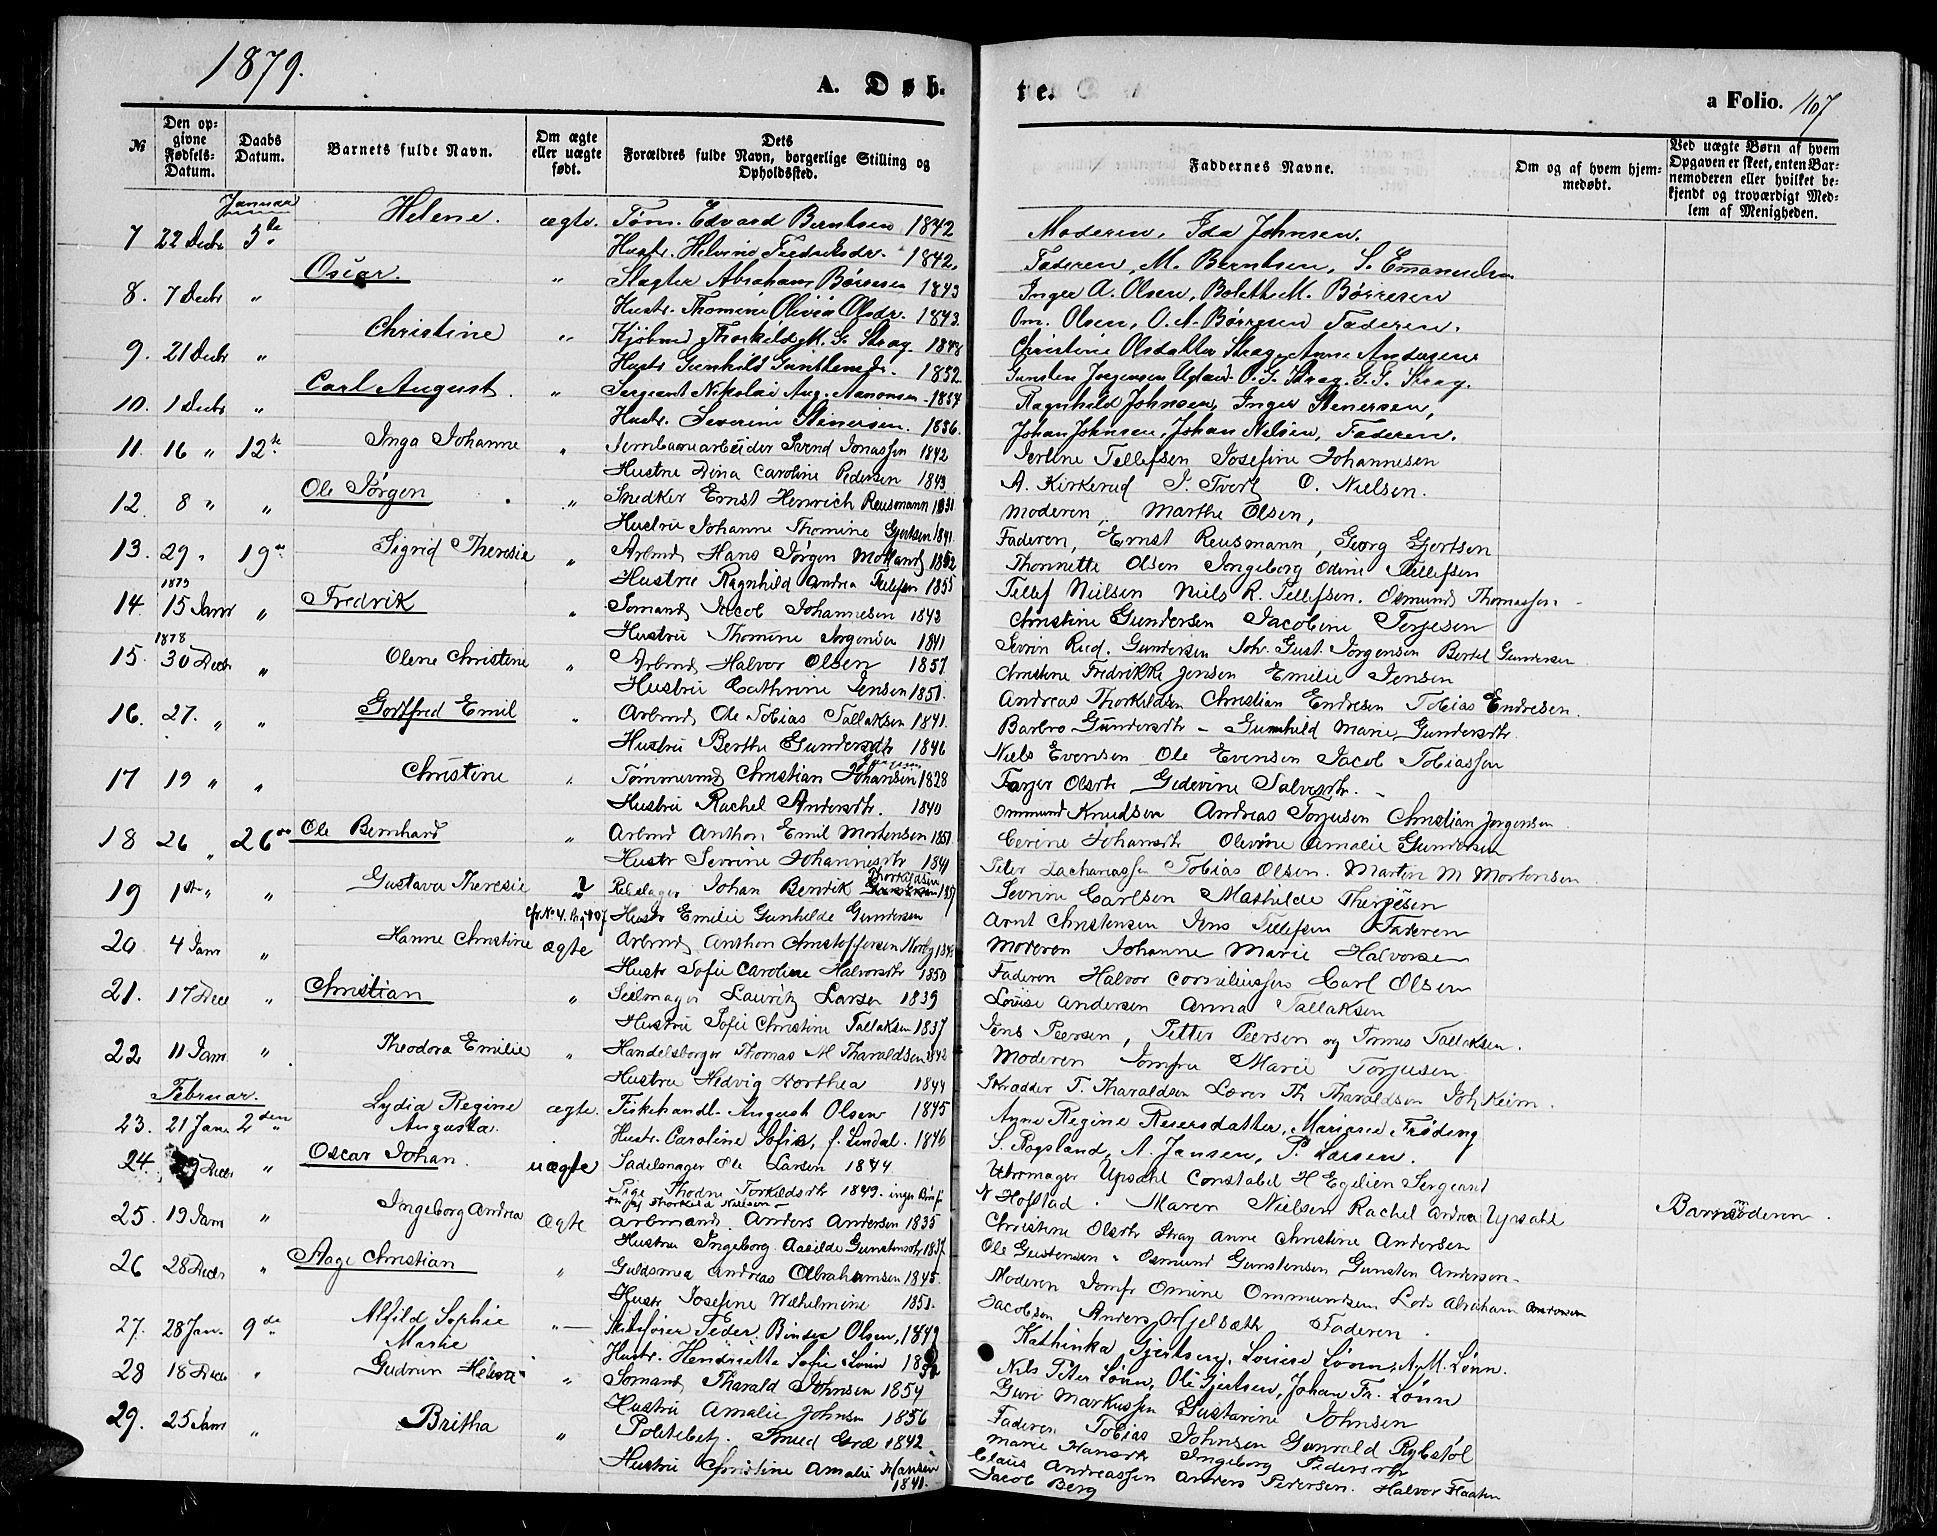 1879.
A. Døb-
te.
a Folio. 107
№
Den op-
givne
Fødsels-
Datum.
Daabs
Datum.
Barnets fulde Navn.
Om ægte
eller uægte
født.
Dets
Forældres fulde Navn, borgerlige Stilling og
Opholdssted.
Faddernes Navne.
Om og af hvem hjem-
medøbt.
Ved uægte Børn af hvem
Opgaven er skeet, enten Bar-
nemoderen eller hvilket be-
kjendt og troværdigt Med-
lem af Menigheden.
Januar
7 22 Decbr 5te Helene. ægte. Tøm. Edvard Berntsen 1842
Hustr. Helvine Fredriksdr. 1842.
Moderen, Ida Johnsen.
Faderen, M. Berntsen, S. Emanuelsen
8. 7 Decbr " Oscar. " Slagter Abraham Børresen 1843
Hustr. Thomine Olivia Olsdr. 1843.
Inger A. Olsen, Bolethe M. Børresen
Om. Olsen, O. A. Børresen Faderen.
9. 21 Decbr " Christine " Kjøbmd Thorkild M. G. Stray 1848
Hustr Gunhild 1852
Christine Olsdatter Stray, Anne Andersen
Gunsten Jørgensen Ugland O. G. Stray. G. G. Stray.
10. 1 Decbr " Carl August. " Sergeant Nikolai Aug. Aanonsen 1854
Hustr. Severine Stenersen. 1856.
Ragnhild Johnsen, Inger Stenersen,
Johan Johnsen, Johan Nelsen, Faderen.
11. 16 " 12te Inga Johanne " Jernbanearbeider Svend Jonassen 1842
Hustru Dina Caroline Pedersen 1843
Tellefsen Josefine Johannesen
A. Kirkerud O. Nielsen.
12. 8 " " Ole Jørgen " Snedker Ernst Henrich Reusmann 1831
Hustru Johanne Thomine Gjertsen 1841
Moderen, Marthe Olsen,
Faderen, Ernst Reusmann, Georg Gjertsen
13. 29 " 19de Sigrid Theresie " Arbmd Hans Jørgen Molland 1852
Hustru Ragnhild Andrea Tellefsen 1855
Thonnette Olsen Ingeborg Odine Tellefsen
Tellef Nielsen Niels R. Tellefsen. Osmund Thomassen
1879
14 15 Janr " Fredrik " Sømand Jacob Johannesen 1843
Hustru Thomine Jørgensen 1841
Christine Gundersen Jacobine Terjesen
Sevrin Rud. Gundersen Joh. Gust. Jørgensen Bertel Gundersen
1878
15. 30 Decbr " Olene Christine " Arbmd Halvor Olsen 1851
Hustru Cathrine Jensen 1851.
Christine Fredrikke Jensen Emilie Jensen
Andreas Thorkildsen Christian Endresen Tobias Endresen.
16. 27. " " Gottfred Emil " Arbmd Ole Tobias Tallaksen 1841.
Hustru Berthe Gundersdtr 1846
Barbro Gundersdtr - Gunhild Marie Gundersdtr.
Niels Evensen Ole Evensen Jacob Tobiassen
17 19 " " Christine " Tømmermd Christian Johansen 1828
Hustru Rachel Andersdtr. 1840
Olsdtr Gedevine Salvesdtr.
Ommund Knudsen Andreas Torjusen Christian Jørgensen
18 26 " 26de Ole Bernhard " Arbmd Anthon Emil Mortensen 1851
Hustr Sevrine Johannesdtr 1841
Cerine Johansdtr Olevine Amalie Gundersen
Peter Zachariassen Tobias Olsen. Martin M Mortensen
19 1ste " " Gustava Theresie ? Rebslager Johan Benrik Thorkildsen 1857
cfr. No 4. Pag. 107 Hustr Emilie Gunhilde Gundersen
Sevrine Carlsen Mathilde Therjesen
Arnt Christensen Jens Tellefsen Faderen
20. 4 Janr " Hanne Christine ægte Arbmd Anthon Christoffersen Norby 1848
Hustr Sofie Caroline Halvorsdtr 1850
Moderen Johanne Marie Halvorsen
Faderen Halvor Corneliussen Carl Olsen
21. 17 Dec " Christian " Seilmager Lauritz Larsen 1839
Hustru Sofie Christine Tallaksen 1837
Louise Andersen Anna Tallaksen
Jens Peersen, Petter Peersen og Tomes Tallaksen.
22 11 Jan " Theodora Emilie " Handelsborger Thomas M Tharaldsen 1842
Hustru Hedvig Dorthea 1844
Moderen Jomfru Marie Torjusen
Skrædder T. Tharaldsen Lærer Th Tharaldsen Joh Keim.
Februar.
23. 21 Jan. 2den Lydia Regine Augusta. ægte. Fiskehandl. August Olsen 1845
Hustr. Caroline Sofie, f. Lindal. 1846
Anne Regine Reiersdatter, Mariane Frøding
S. Rogsland, A. Jansen, P. Larsen.
24. 29 Decbr " Oscar Johan. uægte Sadelmager Ole Larsen 1844
Pige Thodne Torkildsdtr 1849.
Uhrmager Upsahl Constabel H Egelien Sergeant
N Hofstad. Maren Nielsen Rachel Andrea Upsahl
Barnemoderen.
25. 19 Jan " Ingeborg Andrea Ægte Arbmand. Anders Andersen 1835
Hustru Ingeborg Aasilde Gunstensdtr 1837.
Christine Olsdtr Stray Anne Christine Andersen
Ole Gustensen " Osmund Gunstensen Gunsten Andersen
26 28 Decbr " Aage Christian " Guldsmed Andreas Abrahamsen 1845.
Hustr Josefine Wilhelmine 1851.
Moderen Jomfr Omine Ommundsen Lods Abraham Andersen
Jacobsen Anders Hjelsæth Faderen.
27. 28 Jan. 9de Alfild Sophie Marie " Skibsfører Peder Binder Olsen, 1849
Hustr. Henriette Sofie Lønn 1852
Kathinka Gjertsen, Louise Lønn, A. M. Lønn.
Nils Peter Lønn, Ole Gjertsen, Johan Fr. Lønn
28 18 Decbr " Gudrun Helene " Sømand Tharald Johnsen 1854
Hustru Amalie Johnsen 1856
Guri Markussen Gustavine Johnsen
Faderen Tobias Johnsen Gunvald Rybstøl
29. 25 Jan " Britha " Politibetj. Knud Græ 1842
Hustru Christine Amalie Hansen
1841.
Marie Hansdtr Ingeborg Pedersdtr
Claus Andreassen Anders Pedersen. Halvor Flaaten
Jacob Berg